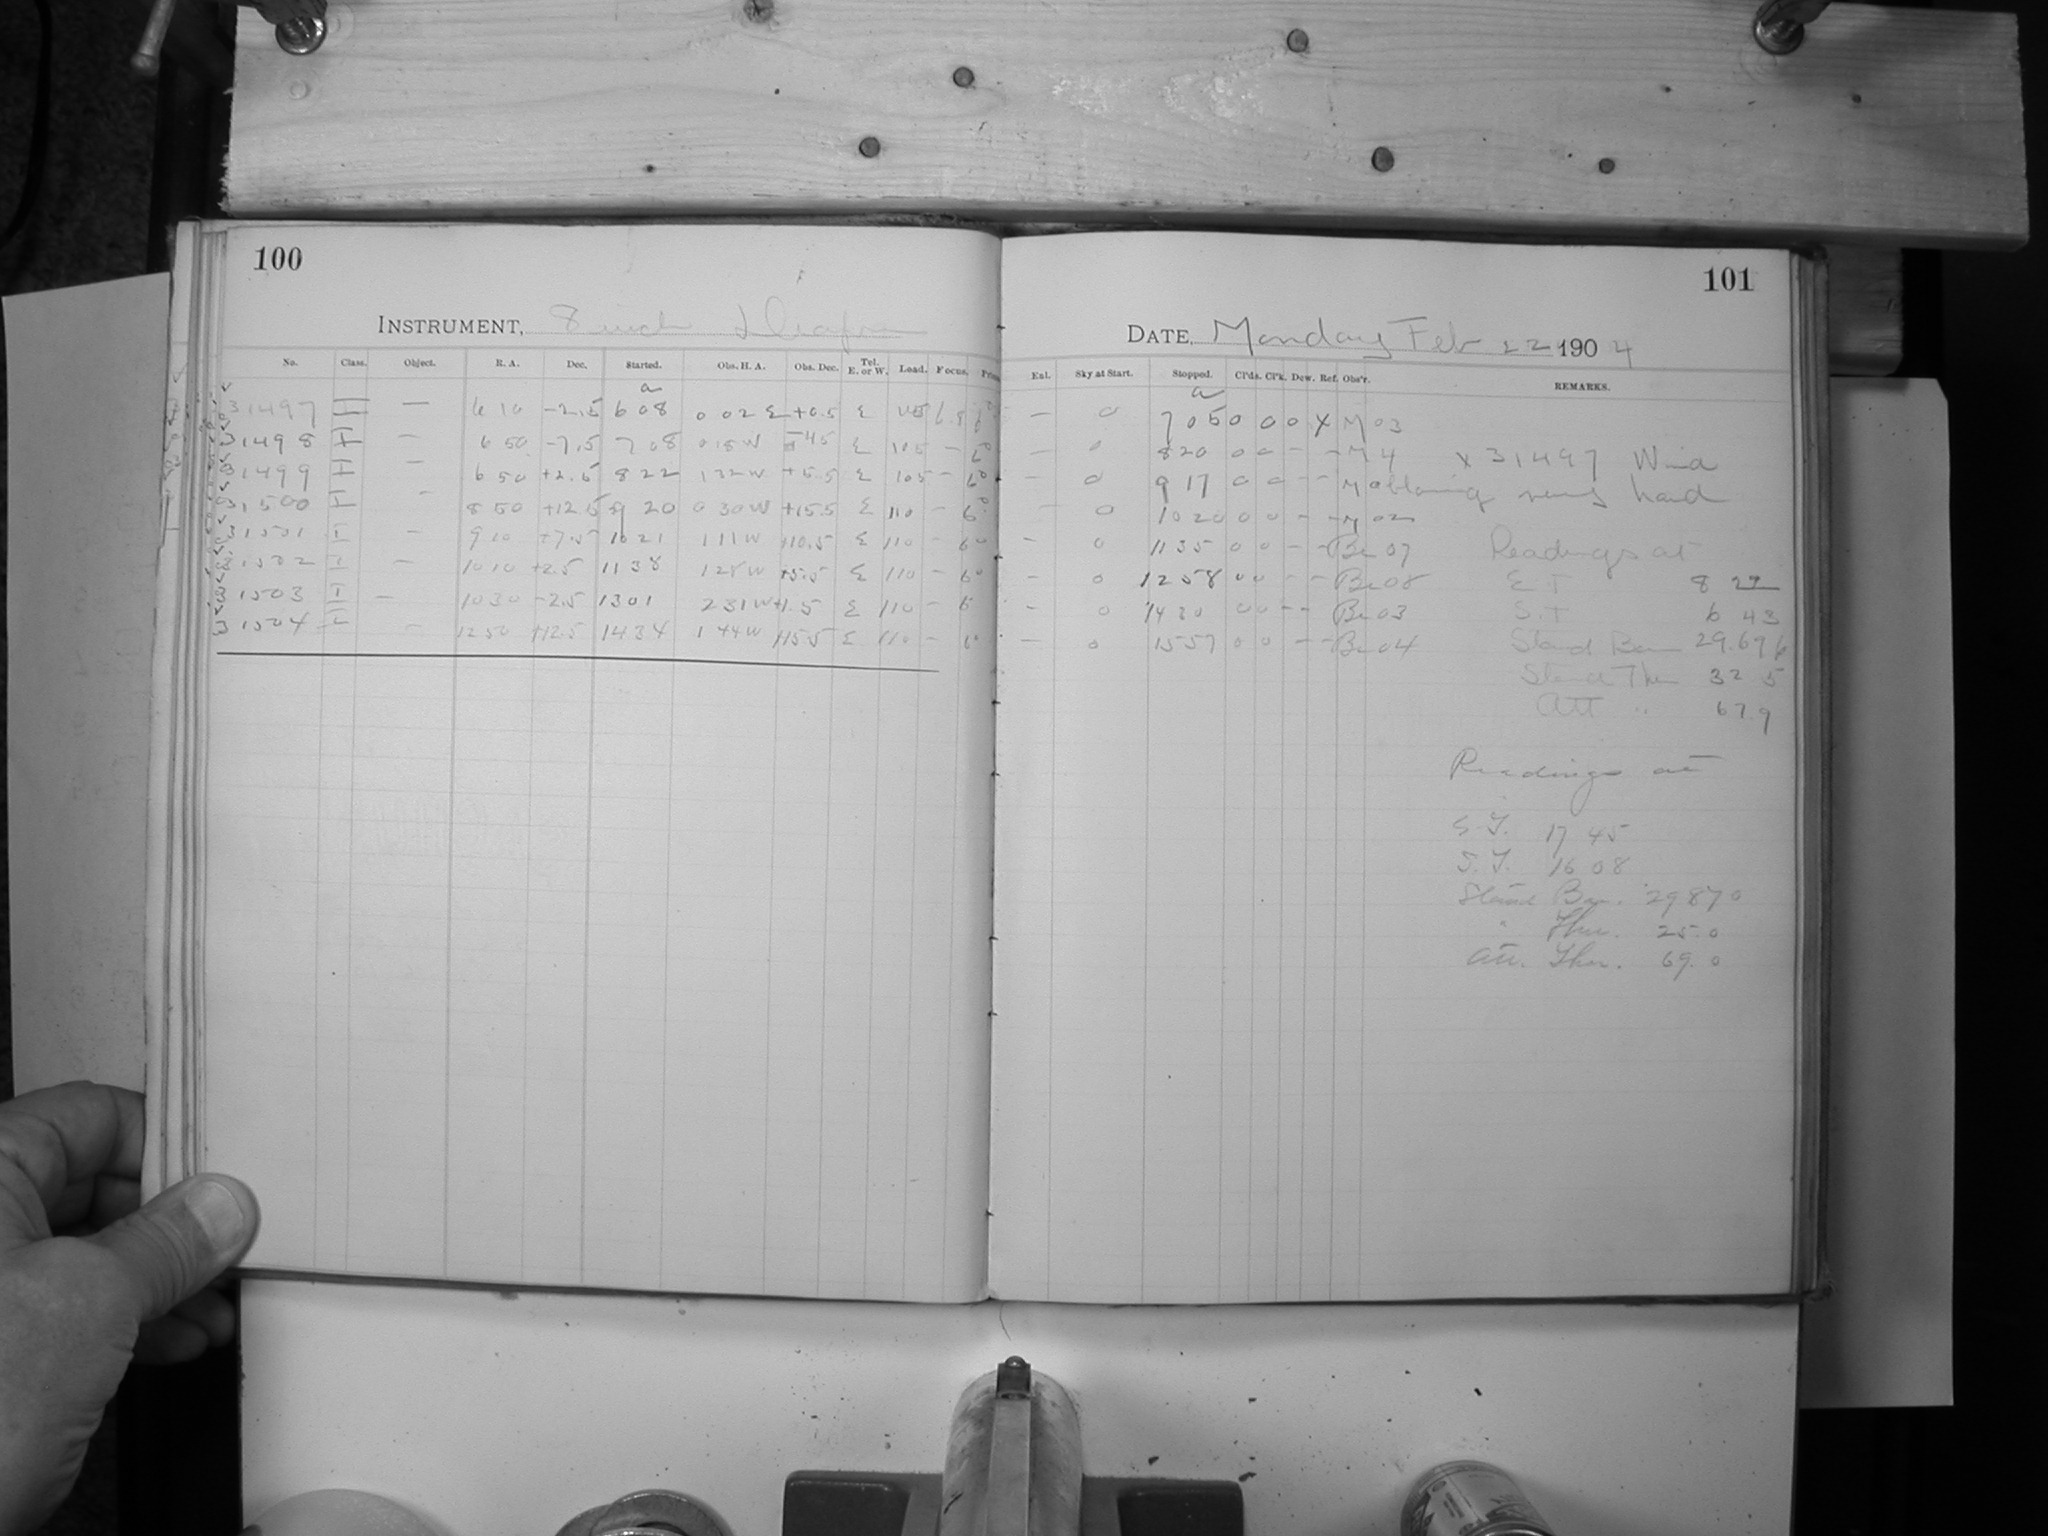 100
INSTRUMENT, 8 inch
No. Class. Object. R. A. Dec. Started. Obs. H. A. Obs. Dec. Tel. E. or W. Load. Focus.
a
31497 I — 6 10 -2.5 6 08 0 02 E +0.5 E 105
31498 I — 6 50 -7.5 7 08 0 18 W -4.5 E 105 — 6°
31499 I — 6 50 +2.5 8 22 1 32 W +5.5 E 105 — 6°
31500 I — 8 50 +12.5 9 20 0 30 W +15.5 E 110 — 6°
31501 I — 9 10 +7.5 10 21 1 11 W +10.5 E 110 — 6°
31502 I — 10 10 +2.5 11 38 1 28 W +5.5 E 110 — 6°
31503 I — 10 30 -2.5 13 01 2 31 W +1.5 E 110 — 6°
31504 I — 12 50 +12.5 14 34 1 44 W +15.5 E 110 — 6°
101
DATE, Monday Feb 22 1904
Ent. Sky at Start. Stopped. Cl'ds. Cl'k. Dew. Ref. Obs'r. REMARKS.
a
— 0 7 05 0 0 0 X M 03
— 0 8 20 0 0 — — M 4 X 31497 Wind
— 0 9 17 0 0 — — M blowing very hard
— 0 10 20 0 0 — — M 02
— 0 11 35 0 0 — — Be 07 Readings at
— 0 12 58 0 0 — — Be 08 E T 8 22
— 0 14 30 0 0 — — Be 03 S.T 6 43
— 0 15 57 0 0 — — Be 04 Stand Bar 29.676
Stand Ther 32 5
Att " 67.9
Readings at
S.T. 17 45
S.T. 16 08
Stand Bar. 29870
" Ther. 25.0
Att. Ther. 69.0